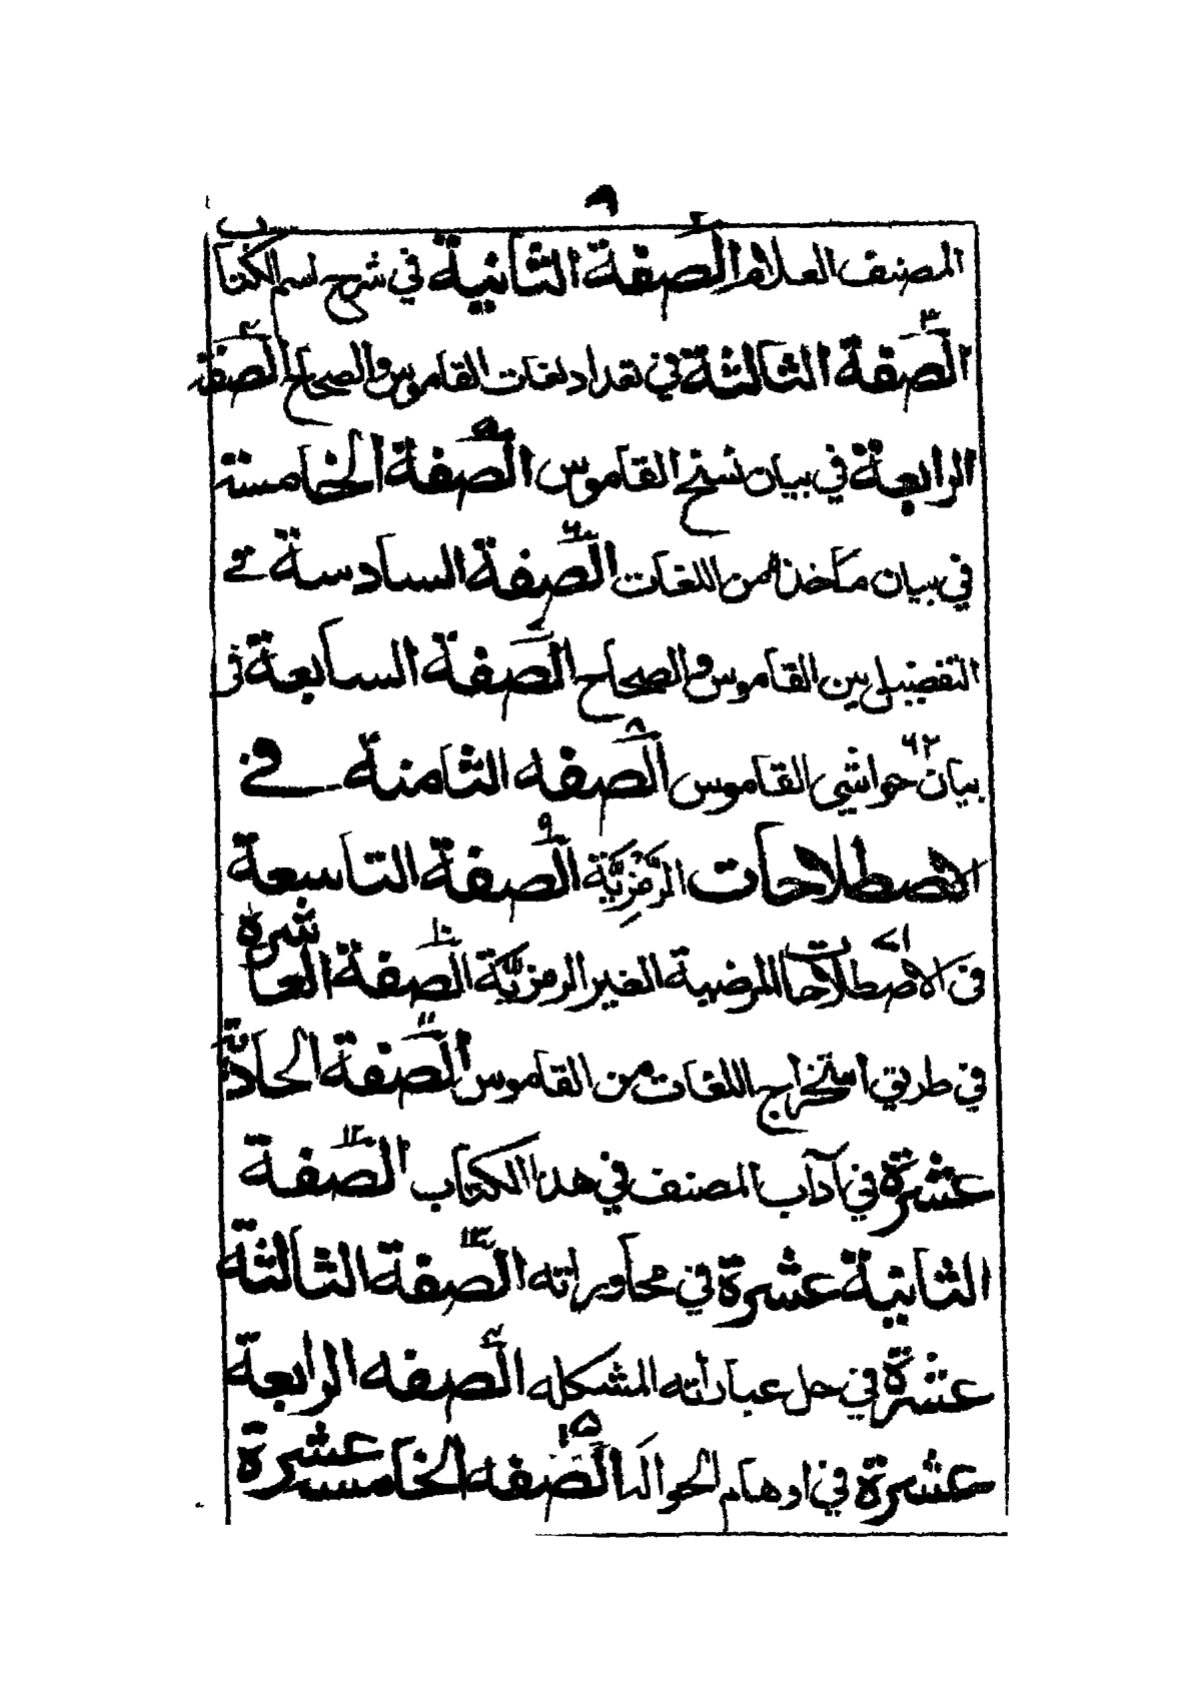 ٩
المصنف العلام الصفة الثانية في شرح اسم الكتاب
الصّفة الثالثة في تعداد لغات القاموس والصحاح الصفة
الرابعة في بيان نسخ القاموس الصّفة الخامسة
في بيان مأخذه من اللغات الصّفة السادسة في
التفضيل بين القاموس والصحاح الصّفة السابعة في
بيان حواشي القاموس الصّفه الثامنة في
الاصطلاحات الرَّمْزِيَّة الصّفة التاسعة
في الاصطلاحات المرضية الغير الرمزيّة الصّفة العاشرة
في طريق استخراج اللغات من القاموس الصّفة الحاديّة
عشرة في آداب المصنف في هذا الكتاب الصّفة
الثانية عشرة في محاوراته الصّفة الثالثة
عشرة في حل عباراته المشكله الصّفه الرابعة
عشرة في اوهام الجوالد الصّفه الخامسة عشرة